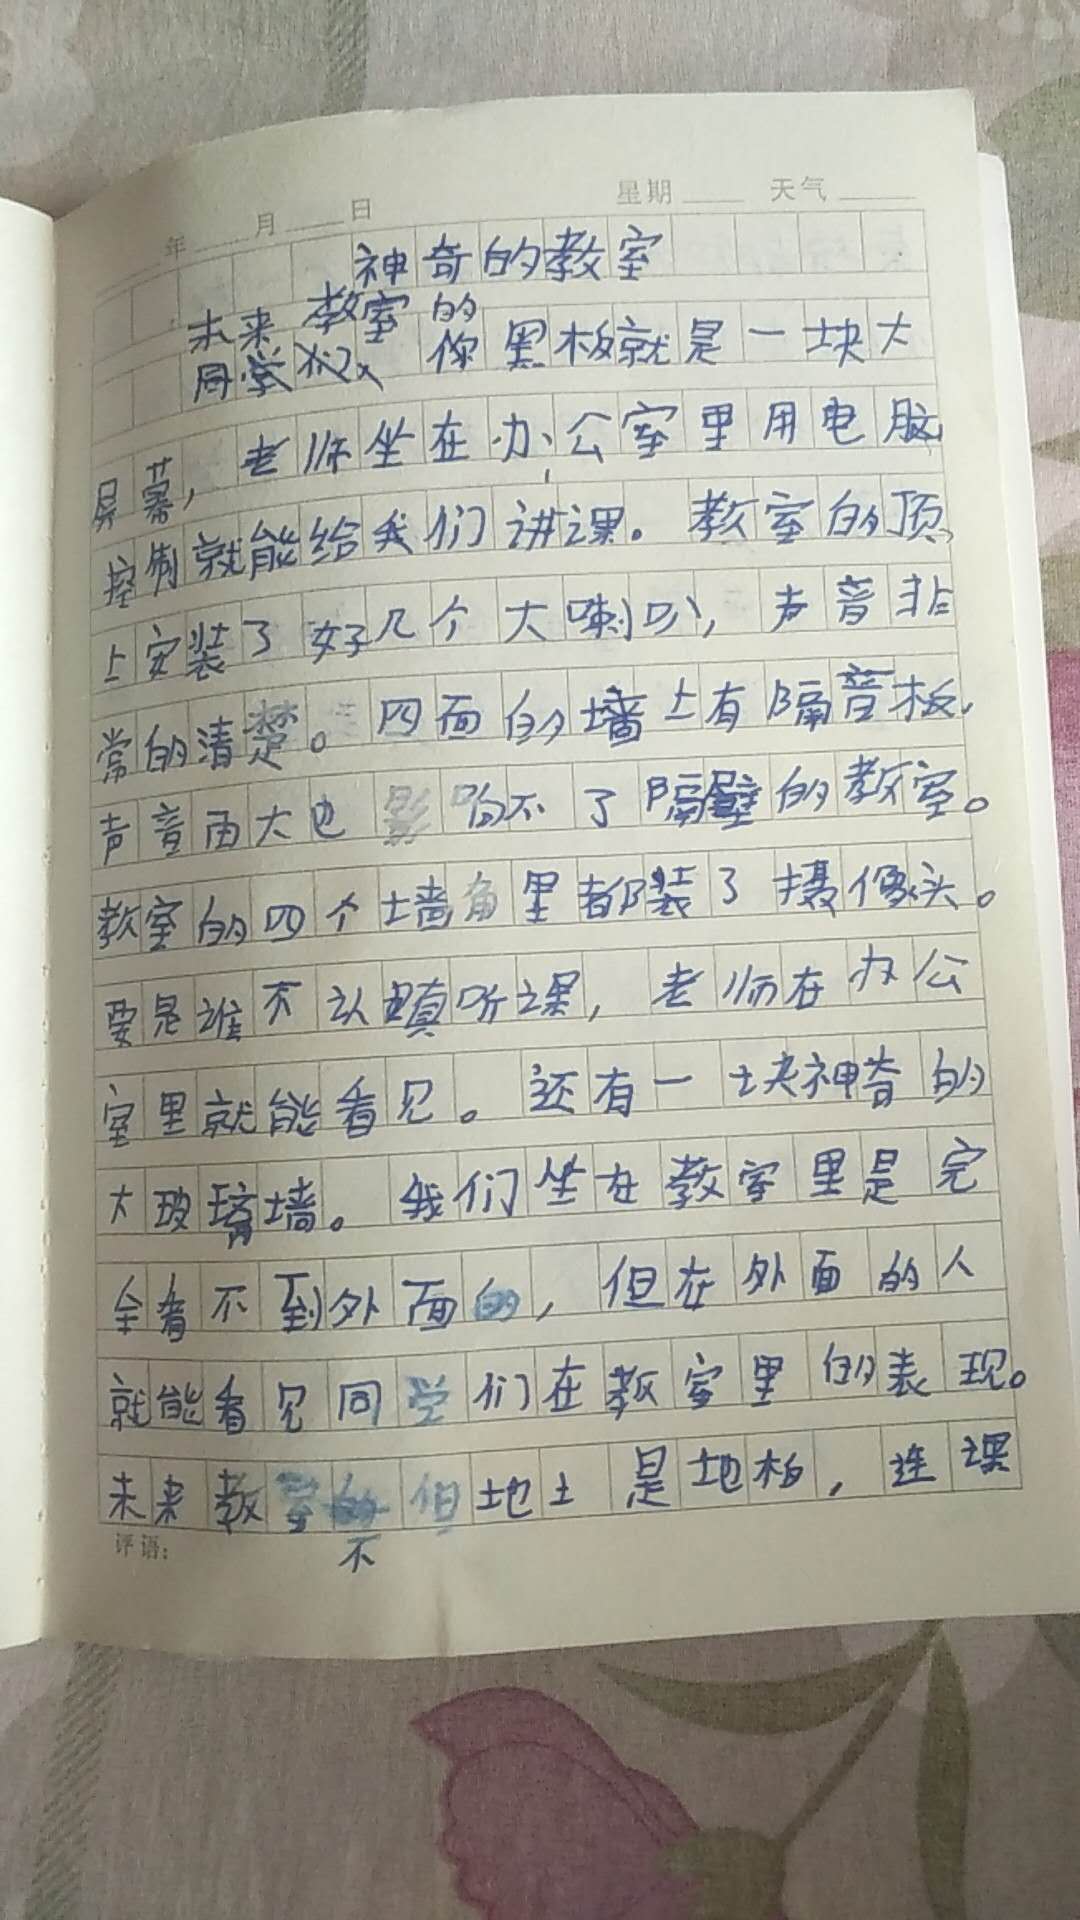 年 月 日 星期 天气
神奇的教室
未来教室的
同学 你黑板就是一块大
屏幕，老师坐在办公室里用电脑
控制就能给我们讲课。教室的顶
上安装了好几个大喇叭，声音非
常的清楚。四面的墙上有隔音板，
声音再大也影响不了隔壁的教室。
教室的四个墙角里都装了摄像头。
要是谁不认真听课，老师在办公
室里就能看见。还有一块神奇的
大玻璃墙。我们坐在教室里是完
全看不到外面的，但在外面的人
就能看见同学们在教室里的表现。
未来教室 但地上是地板，连课
不
评语：